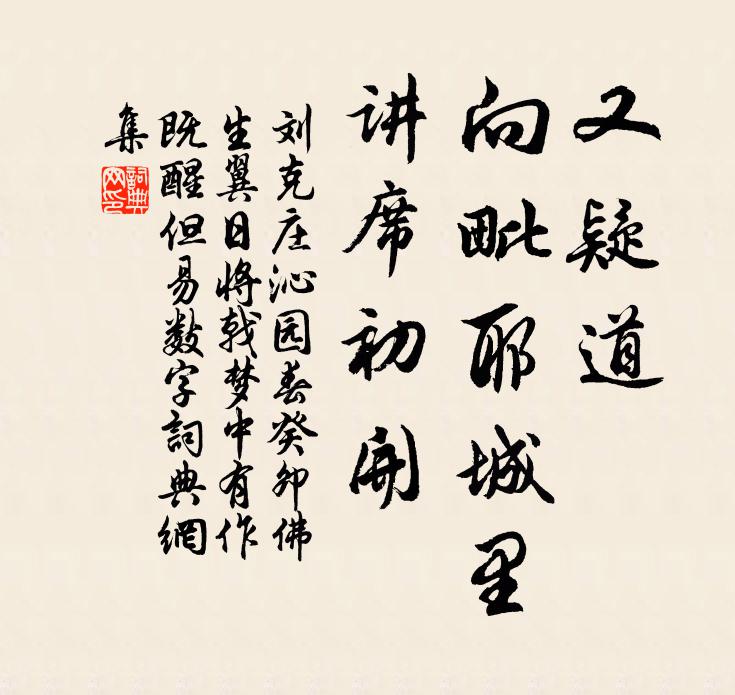 又疑道
向毗耶城里
讲席初開
刘克庄沁园春癸卯佛
生翼日将戟梦中有作
既醒但易数字詞典網
集
詞典
网印